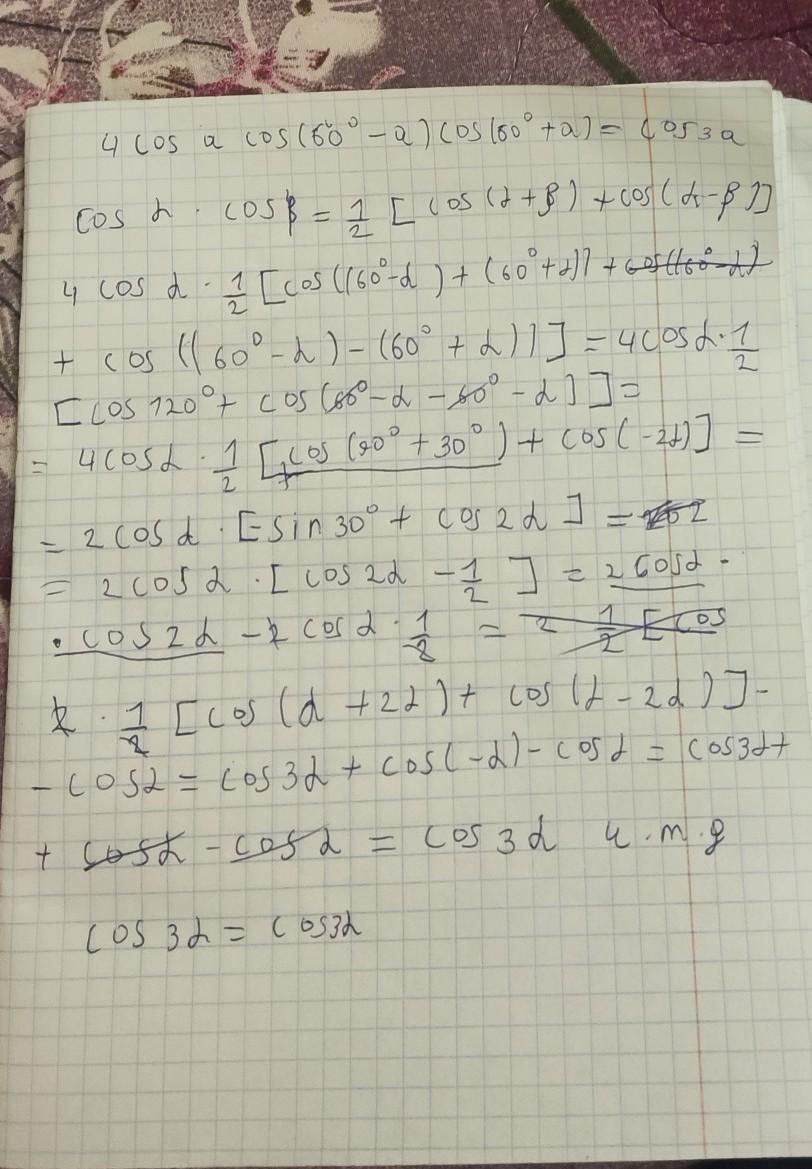 4 cos a cos(60° - a) cos(60° + a) = cos3a
cos α · cos β = 1/2 [ cos (α + β) + cos(α - β)]
4 cos α · 1/2 [cos((60° - α) + (60° + α)) + cos((60° - α)
+ cos ((60° - α) - (60° + α))] = 4cosα · 1/2
[cos 120° + cos (60° - α - 60° - α)] =
= 4cosα · 1/2 [cos (90° + 30°) + cos(-2α)] =
= 2cosα · [-sin30° + cos2α] =
= 2cosα · [cos2α - 1/2] = 2cosα ·
· cos2α - 2 cosα · 1/2 = 2 1/2 [cos
2 · 1/2 [cos(α + 2α) + cos(α - 2α)] -
- cosα = cos3α + cos(-α) - cosα = cos3α +
+ cosα - cosα = cos3α ч.т.д
cos3α = cos3α